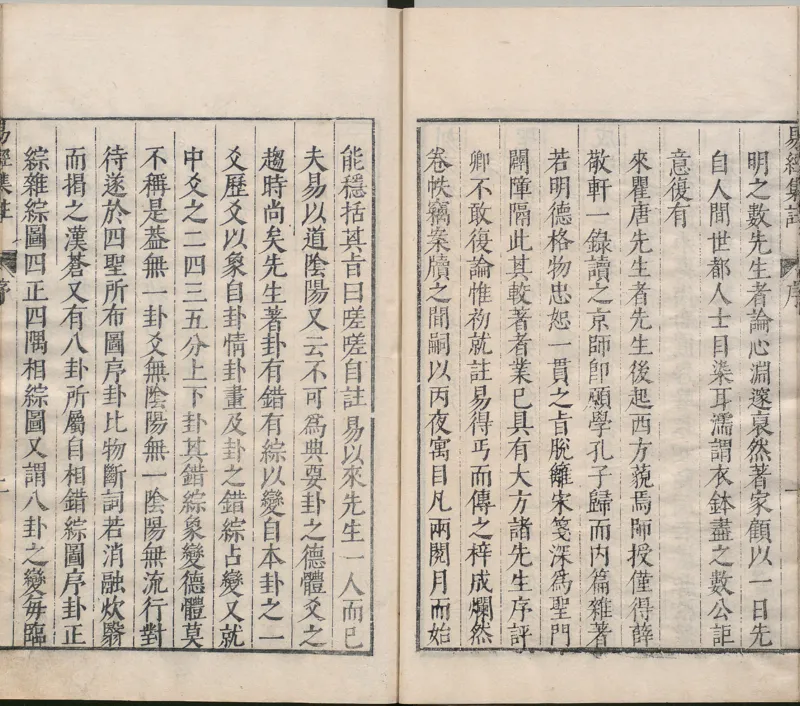 明之數先生者論心淵邃裒然著家顧以一日先
自人間世都人士目柒耳濡謂衣鉢盡之數公詎
意復有
來瞿唐先生者先生後起西方藐焉師授僅得薛
敬軒一錄讀之京師卽願學孔子歸而內篇雜著
若明德格物忠恕一貫之旨脫籬宋箋深爲聖門
闢障隔此其較著者業已具有大方諸先生序評
卿不敢復論惟初就註易得丐而傳之梓成爛然
卷帙竊案牘之間嗣以丙夜寓目凡兩閱月而始
能穩括其旨曰嗟嗟自註易以來先生一人而已
夫易以道陰陽又云不可爲典要卦之德體爻之
趨時尚矣先生著卦有錯有綜以變自本卦之一
爻歷爻以象自卦情卦畫及卦之錯綜占變又就
中爻之二四三五分上下卦其錯綜象變德體莫
不稱是蓋無一卦爻無陰陽無一陰陽無流行對
待遂於四聖所布圖序卦比物斷詞若消融炊翳
而揭之漢蒼又有八卦所屬自相錯綜圖序卦正
綜雜綜圖四正四隅相綜圖又謂八卦之變每臨
易經集註
序